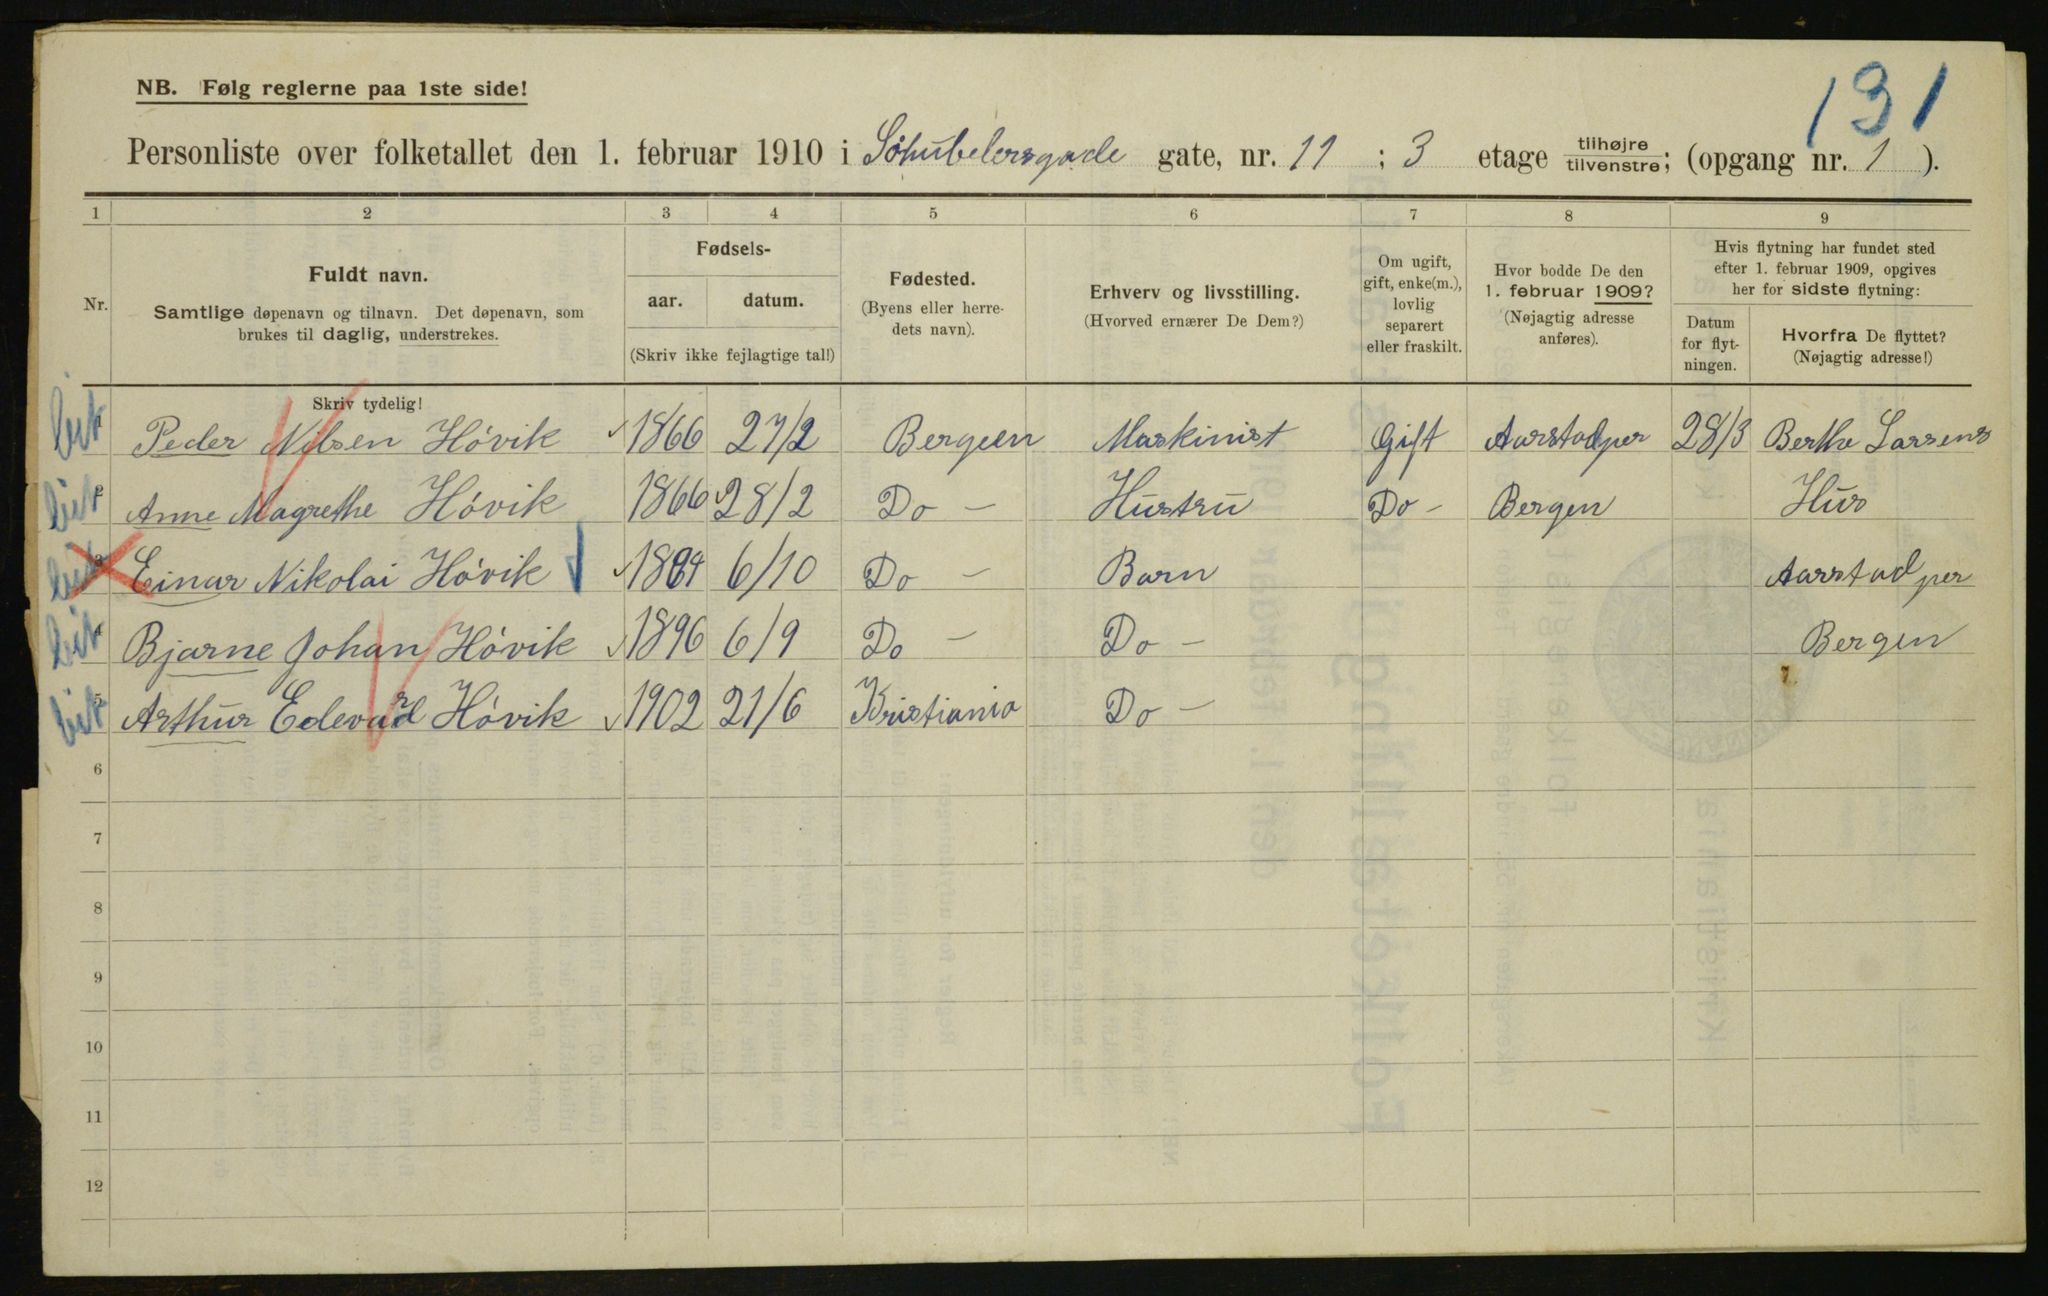 131
NB. Følg reglerne paa 1ste side!
Personliste over folketallet den 1. februar 1910 i Schubelersgade gate, nr. 11 ; 3 etage tilhøjre tilvenstre; (opgang nr. 1 ).
1 2 3 4 5 6 7 8 9
Nr.
Fuldt navn.
Samtlige døpenavn og tilnavn. Det døpenavn, som
brukes til daglig, understrekes.
Fødsels-
aar. datum.
(Skriv ikke fejlagtige tal!)
Fødested.
(Byens eller herre-
dets navn).
Erhverv og livsstilling.
(Hvorved ernærer De Dem?)
Om ugift,
gift, enke(m.),
lovlig
separert
eller fraskilt.
Hvor bodde De den
1. februar 1909?
(Nøjagtig adresse
anføres).
Hvis flytning har fundet sted
efter 1. februar 1909, opgives
her for sidste flytning:
Datum
for flyt-
ningen.
Hvorfra De flyttet?
(Nøjagtig adresse!)
Skriv tydelig!
1 Peder Nilsen Hóvik 1866 27/2 Bergeen Maskinist Gift Aarstadper 28/3 Berthe Larsens
2 Anne Magrethe Hóvik 1866 28/2 Do – Hustru Do – Bergen Hus
3 Einar Nikolai Hóvik 1894 6/10 Do – Barn Aarstad per
4 Bjarne Johan Hóvik 1896 6/9 Do – Do – Bergen
5 Arthur Edevard Hóvik 1902 21/6 Kristiania Do –
6
7
8
9
10
11
12